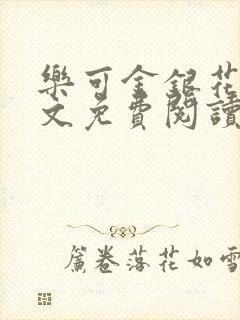 樂可金銀花
文免費閱讀
簾卷落花如雪